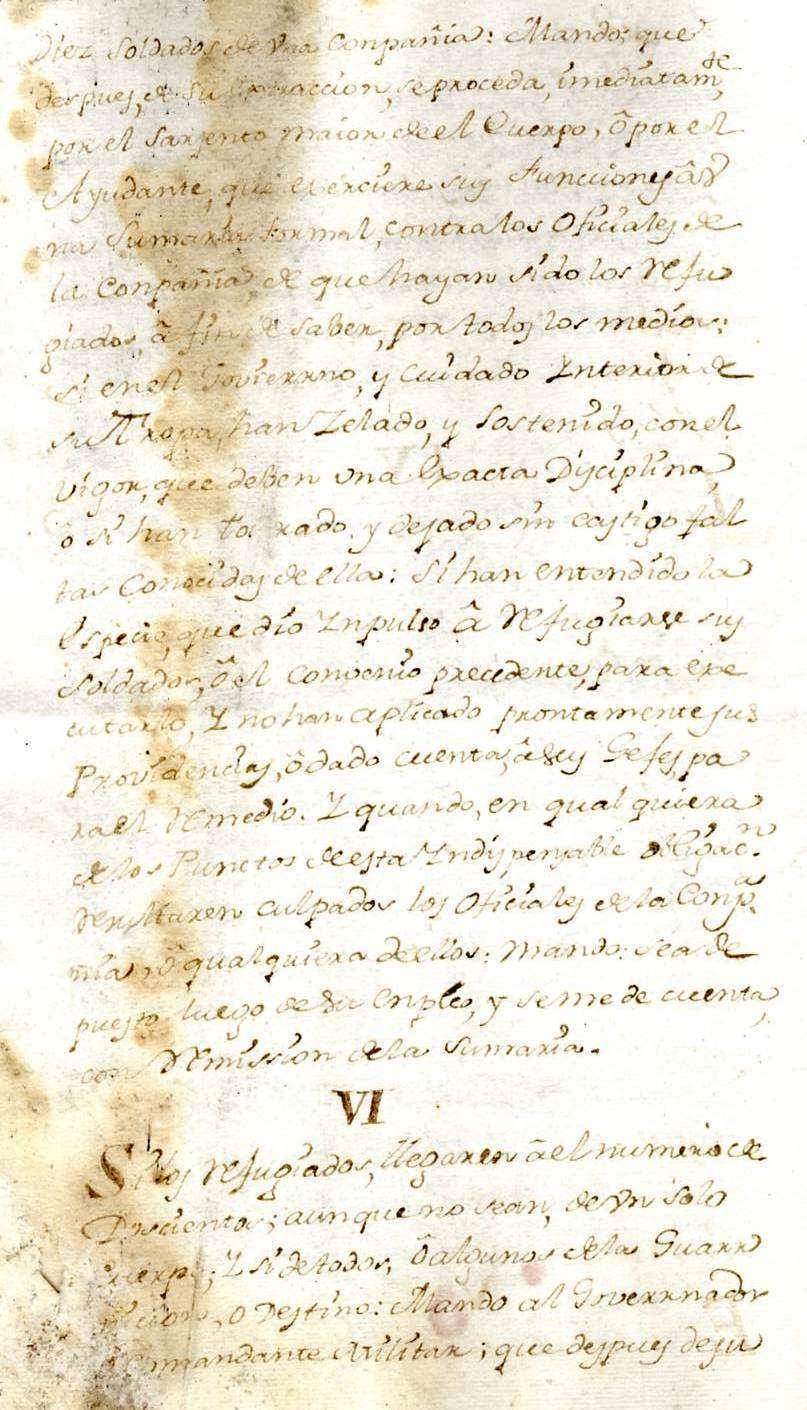 Diez Soldados de Vna Conpañia: Mando; que
despues, de su Extraccion, se proceda, imediatam.te
por el Sarjento maior de el Cuerpo, ô por el
Ayudante, que exerciere sus Funcciones â V
na Sumaria formal, contra los Oficiales de
la Conpañia, de que hayan sido los Refu
giados, â fin de saber, por todos los medios:
si en el Govierrno, y cuidado Interior de
su Tropa, han Zelado, y Sostenido, con el
vigor, que deben una Exacta Disciplina,
o si han to rado. y dejado sin castigo fal
tas Conocidas de ella: Si han entendido la
Especie, que dio Ynpulso â Refugiarse sus
Soldados, ô el Convenio precedente, para exe
cutarlo, Y no han aplicado prontamente sus
Providencias, ô dado cuenta, â sus Gefes pa
ra el Remedio. Y quando, en qual quiera
de los Punctos de esta Yndispensable obligac.n
Resultaren culpados los Oficiales de la Conp.a
ñia, ô qual quiera de ellos: Mando: sea de
puesto luego de su Enpleo, y se me de cuenta,
con Remission de la Sumaria.
VI
Si los Refugiados, llegaren â el numero de
Duscientos; aunque no sean, de Vn solo
Cuerpo; Y si de todos, ô algunos de la Guarr
nicion, o Destino: Mando al Governnador
Comandante Militar; que despues de su